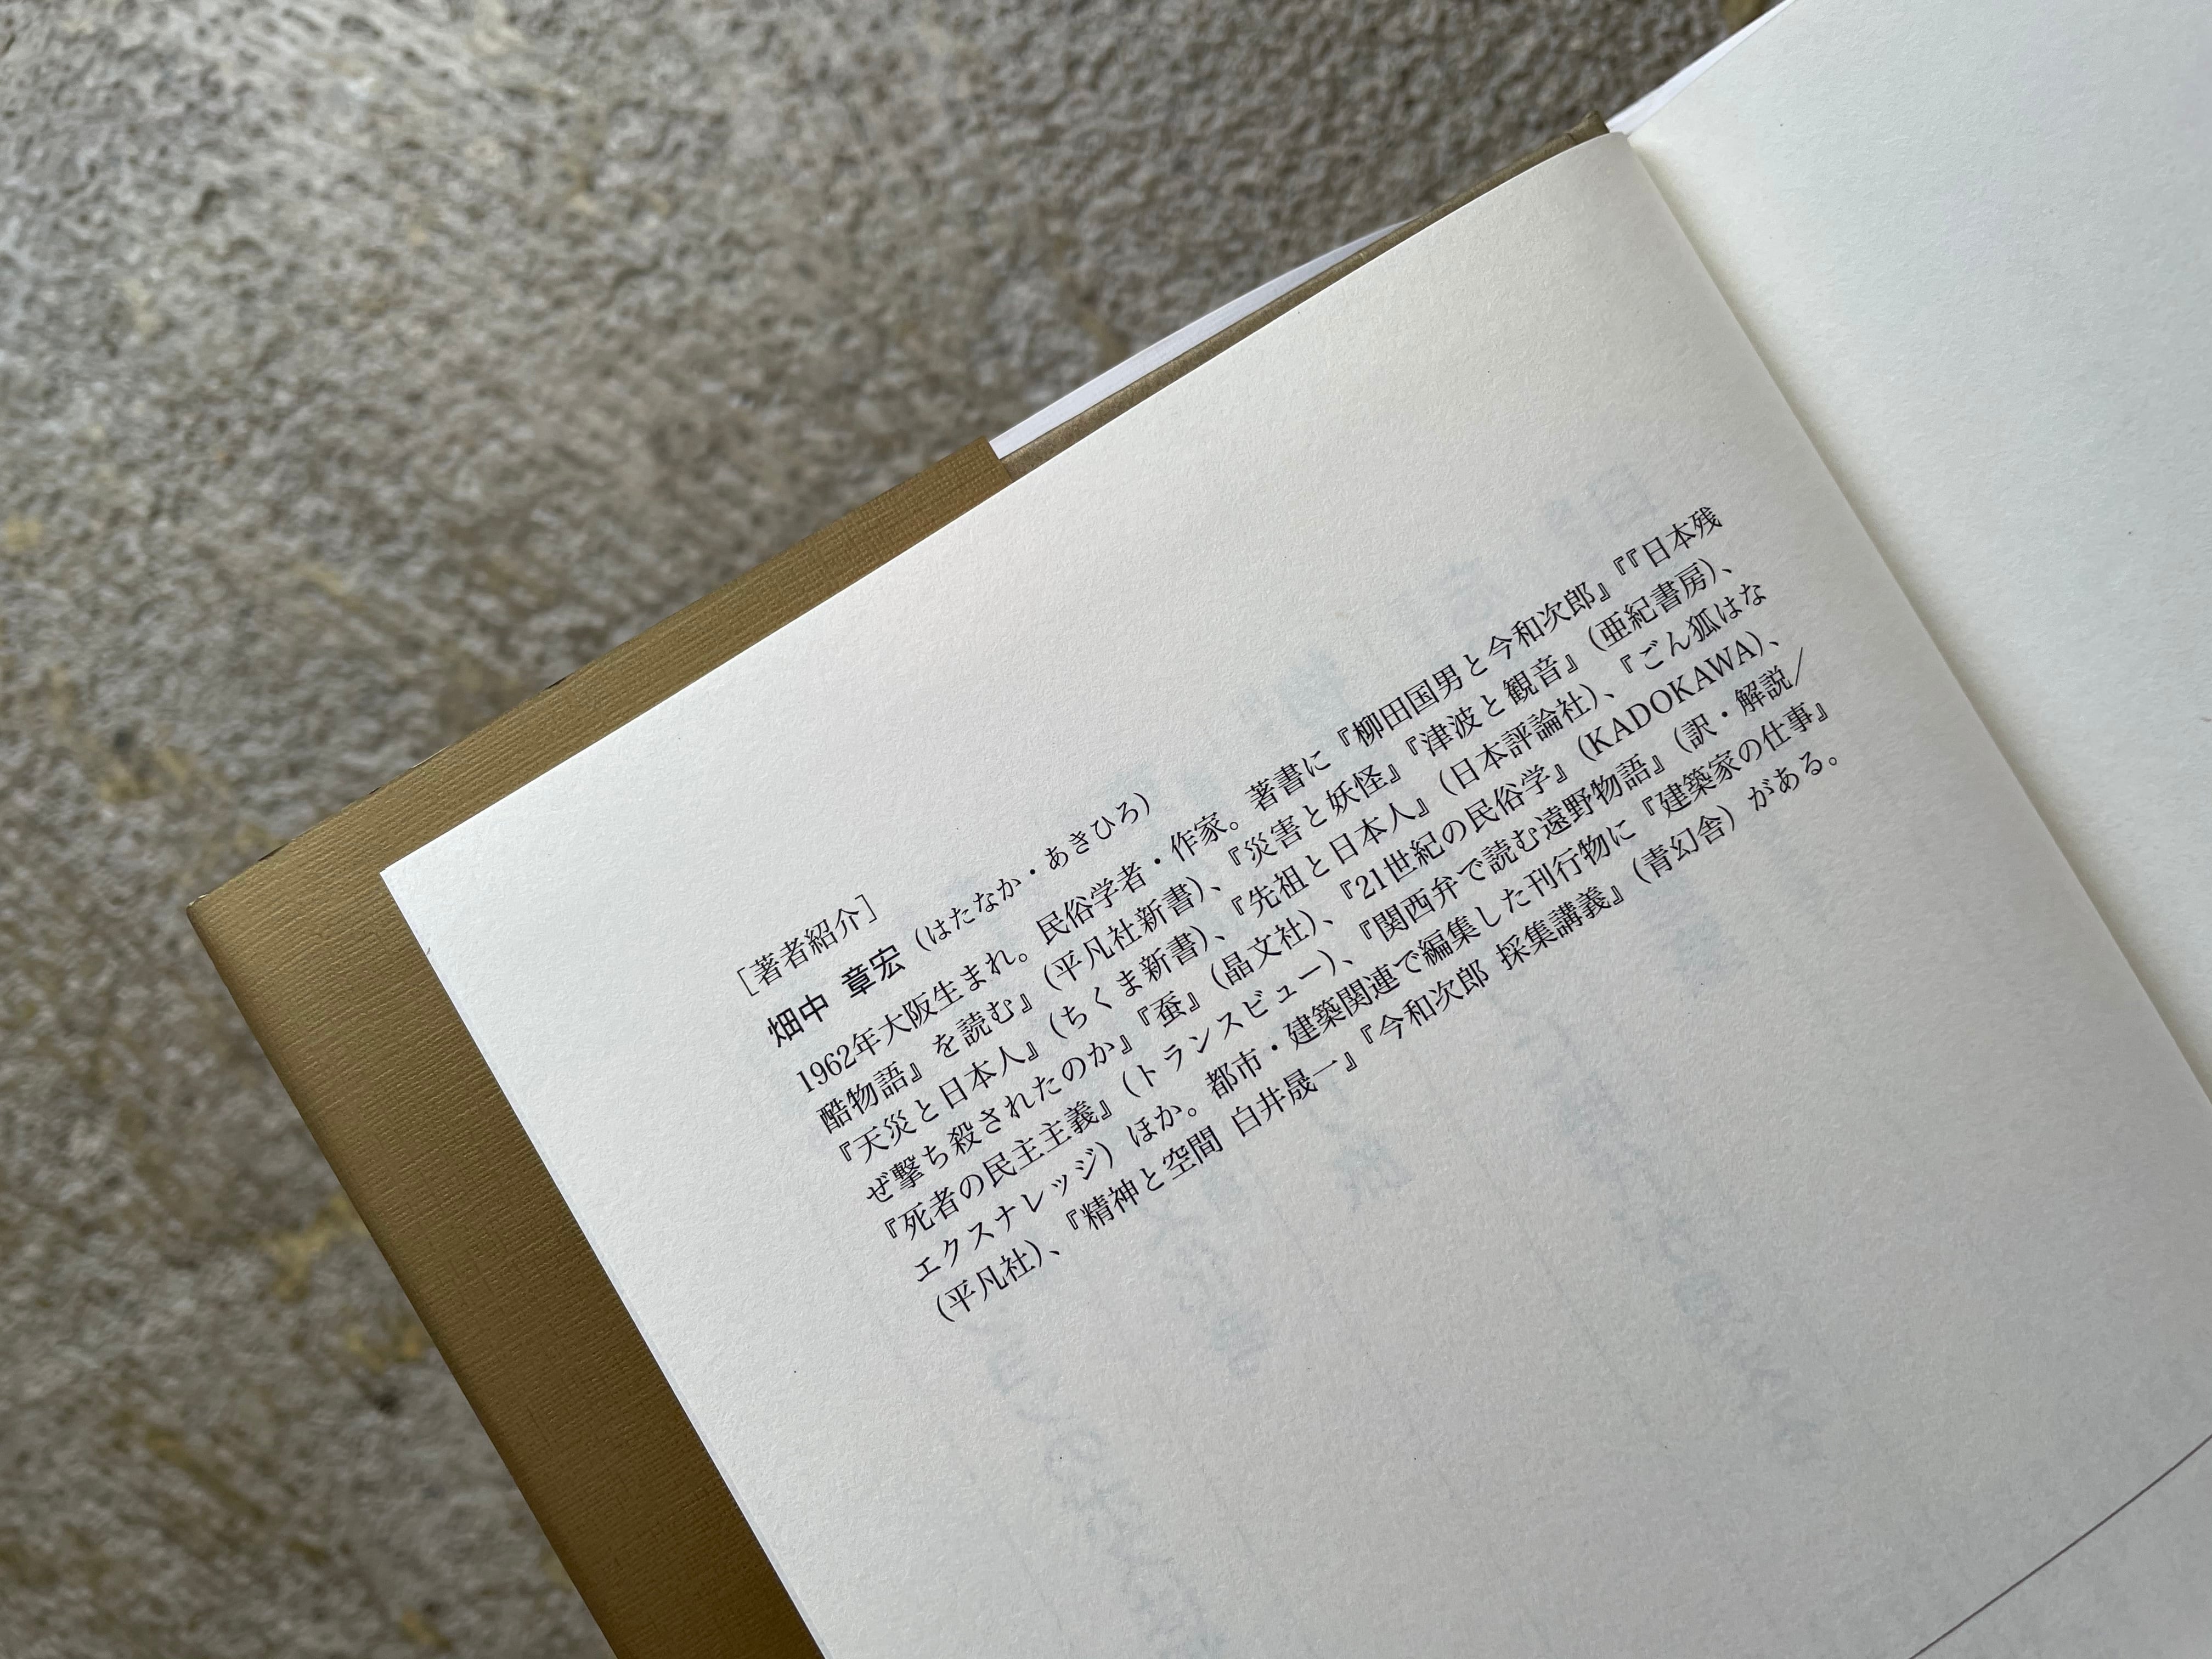 ［著者紹介］
畑中 章宏（はたなか・あきひろ）
1962年大阪生まれ。民俗学者・作家。著書に『柳田国男と今和次郎』『『日本残
酷物語』を読む』（平凡社新書）、『災害と妖怪』『津波と観音』（亜紀書房）、
『天災と日本人』（ちくま新書）、『先祖と日本人』（日本評論社）、『ごん狐はな
ぜ撃ち殺されたのか』『蚕』（晶文社）、『21世紀の民俗学』（KADOKAWA）、
『死者の民主主義』（トランスビュー）、『関西弁で読む遠野物語』（訳・解説／
エクスナレッジ）ほか。都市・建築関連で編集した刊行物に『建築家の仕事』
（平凡社）、『精神と空間 白井晟一』『今和次郎 採集講義』（青幻舎）がある。